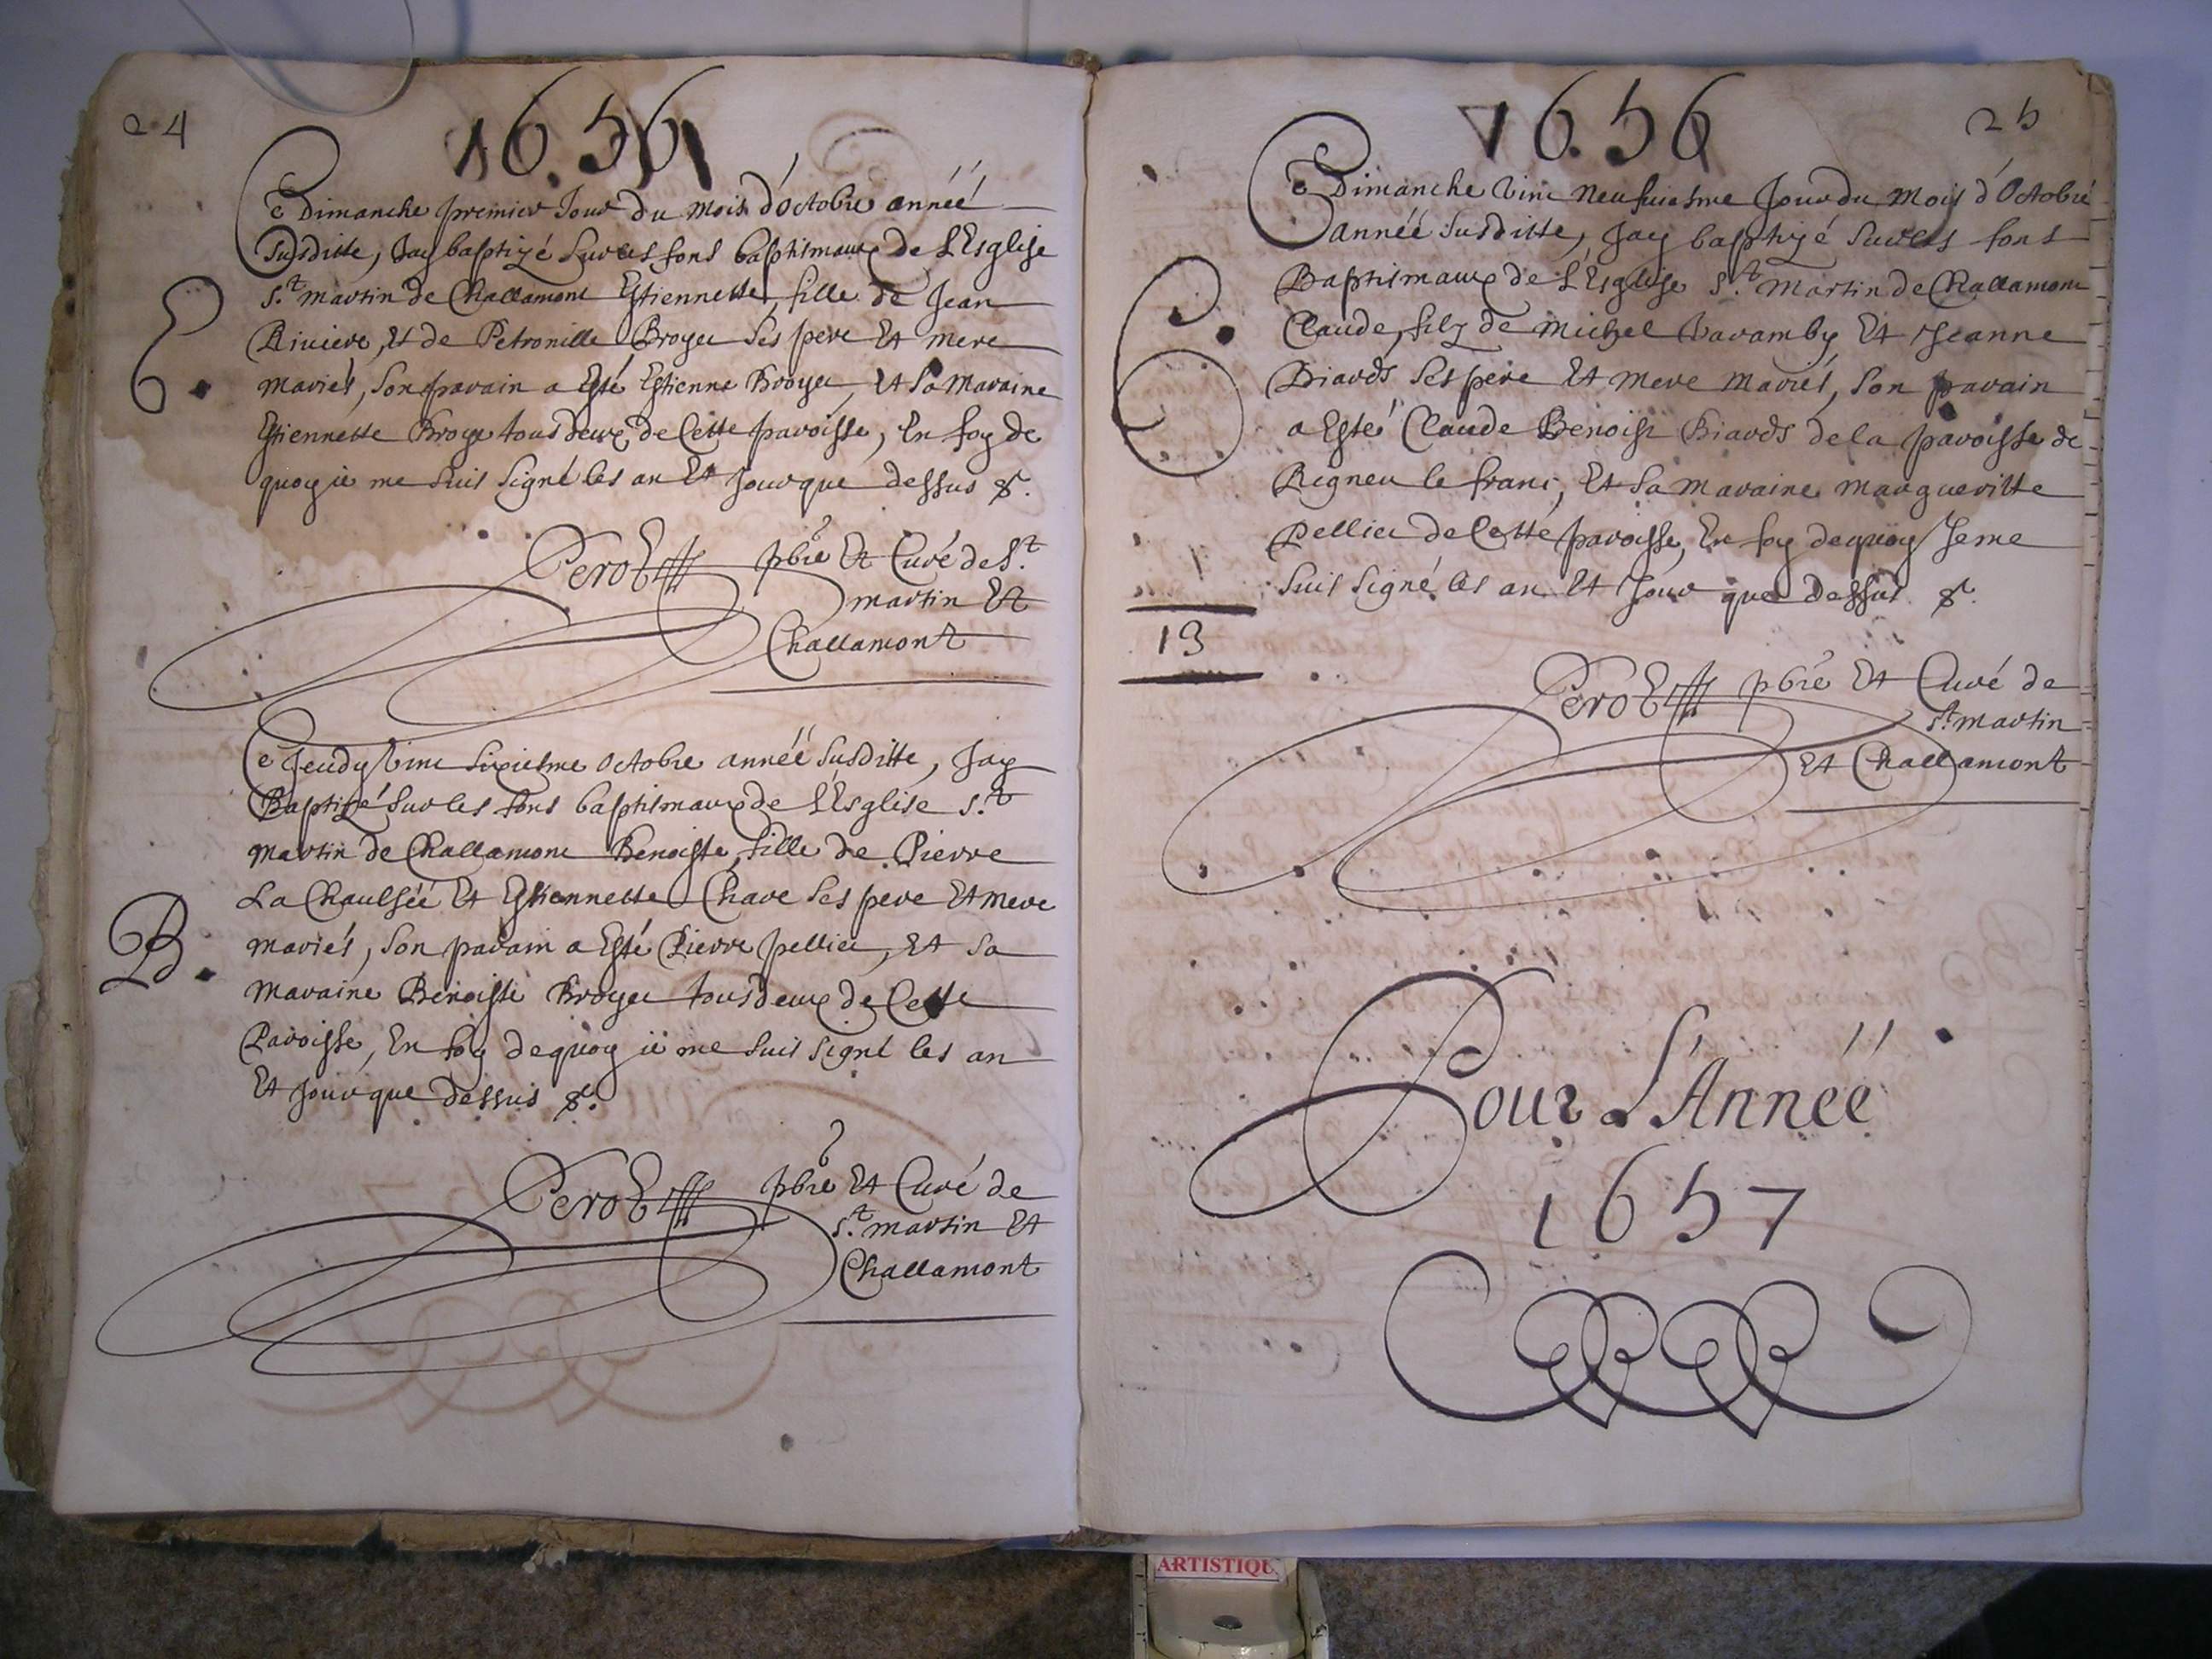 24
1656
Ce Dimanche premier Jour du mois d'octobre année
susditte, Jay baptizé sur les fons baptismaux de L'Esglise
St martin de Challamont Estiennette, fille de Jean
Riviere, et de Petronille Broyer ses pere Et mere
mariés, son parain a Esté Estienne Broyer, Et sa maraine
Estiennette Broyer tous deux de Cette paroisse, En foy de
quoy ie me suis signé les an Et Jour que dessus &.
E.
Perot pbre Et Curé de St
martin Et
Challamont
Ce Jeudy Vint sixiesme octobre année susditte, Jay
Baptizé sur les fons baptismaux de L'Esglise St
martin de Challamont Benoiste, fille de Pierre
La Chaulsée Et Estiennette Chave ses pere Et mere
B.
mariés, son parain a Esté Pierre pellier, Et sa
maraine Benoiste Broyer tous deux de Cette
Paroisse, En foy de quoy ie me suis signé les an
Et Jour que dessus &.
Perot pbre Et Curé de
St martin Et
Challamont
25
1656
Ce Dimanche Vint Neufuiesme Jour du mois d'Octobre
année susditte, Jay baptizé sur les fons
Baptismaux de L'Esglise St martin de Challamont
C.
Claude, filz de michel Varamby Et Jeanne
Biards ses pere Et mere mariés, son parain
a Esté Claude Benoist Biards de la paroisse de
Rigneu le franc, Et sa maraine margueritte
Pellier de Cette paroisse, En foy de quoy Je me
suis signé les an Et Jour que dessus &.
13
Perot pbre Et Curé de
St martin
Et Challamont
Pour L'Année
1657
ARTISTIQU